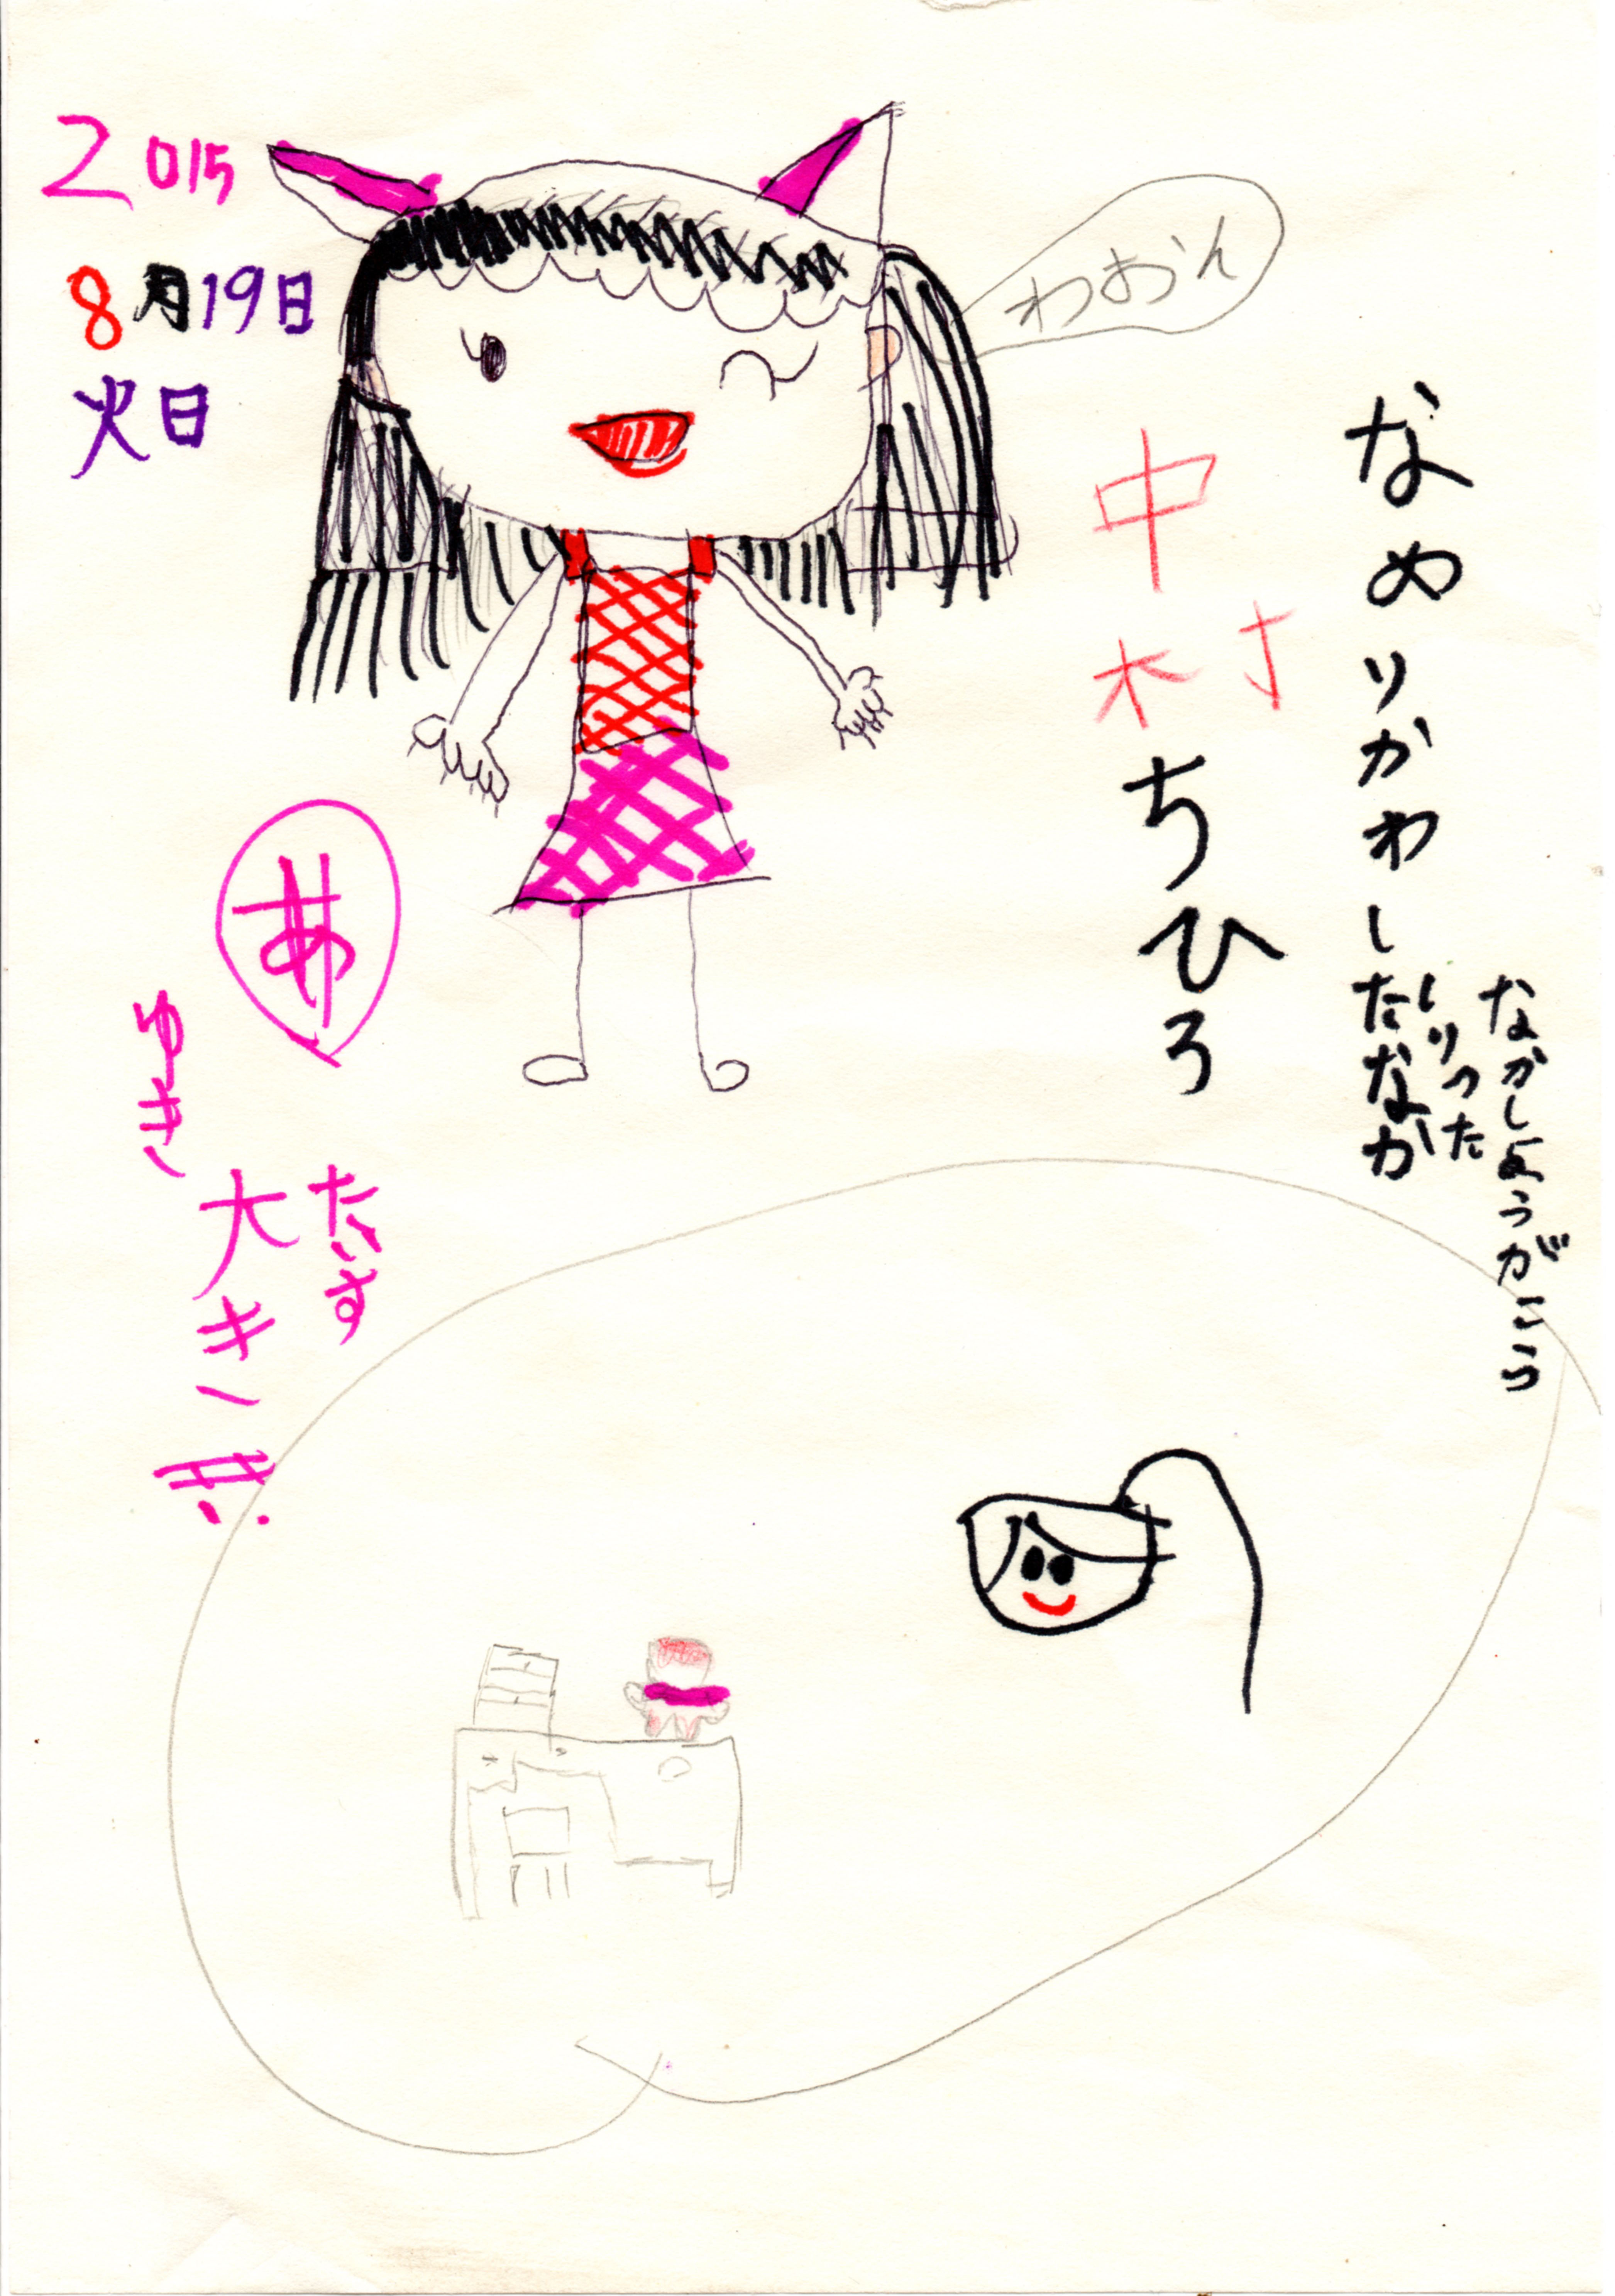 2015
8月19日
火日
わおん
なめりかわしたなか
しりつた
なかしょうがこう
中村ちひろ
あ
ゆき
たいす
大き